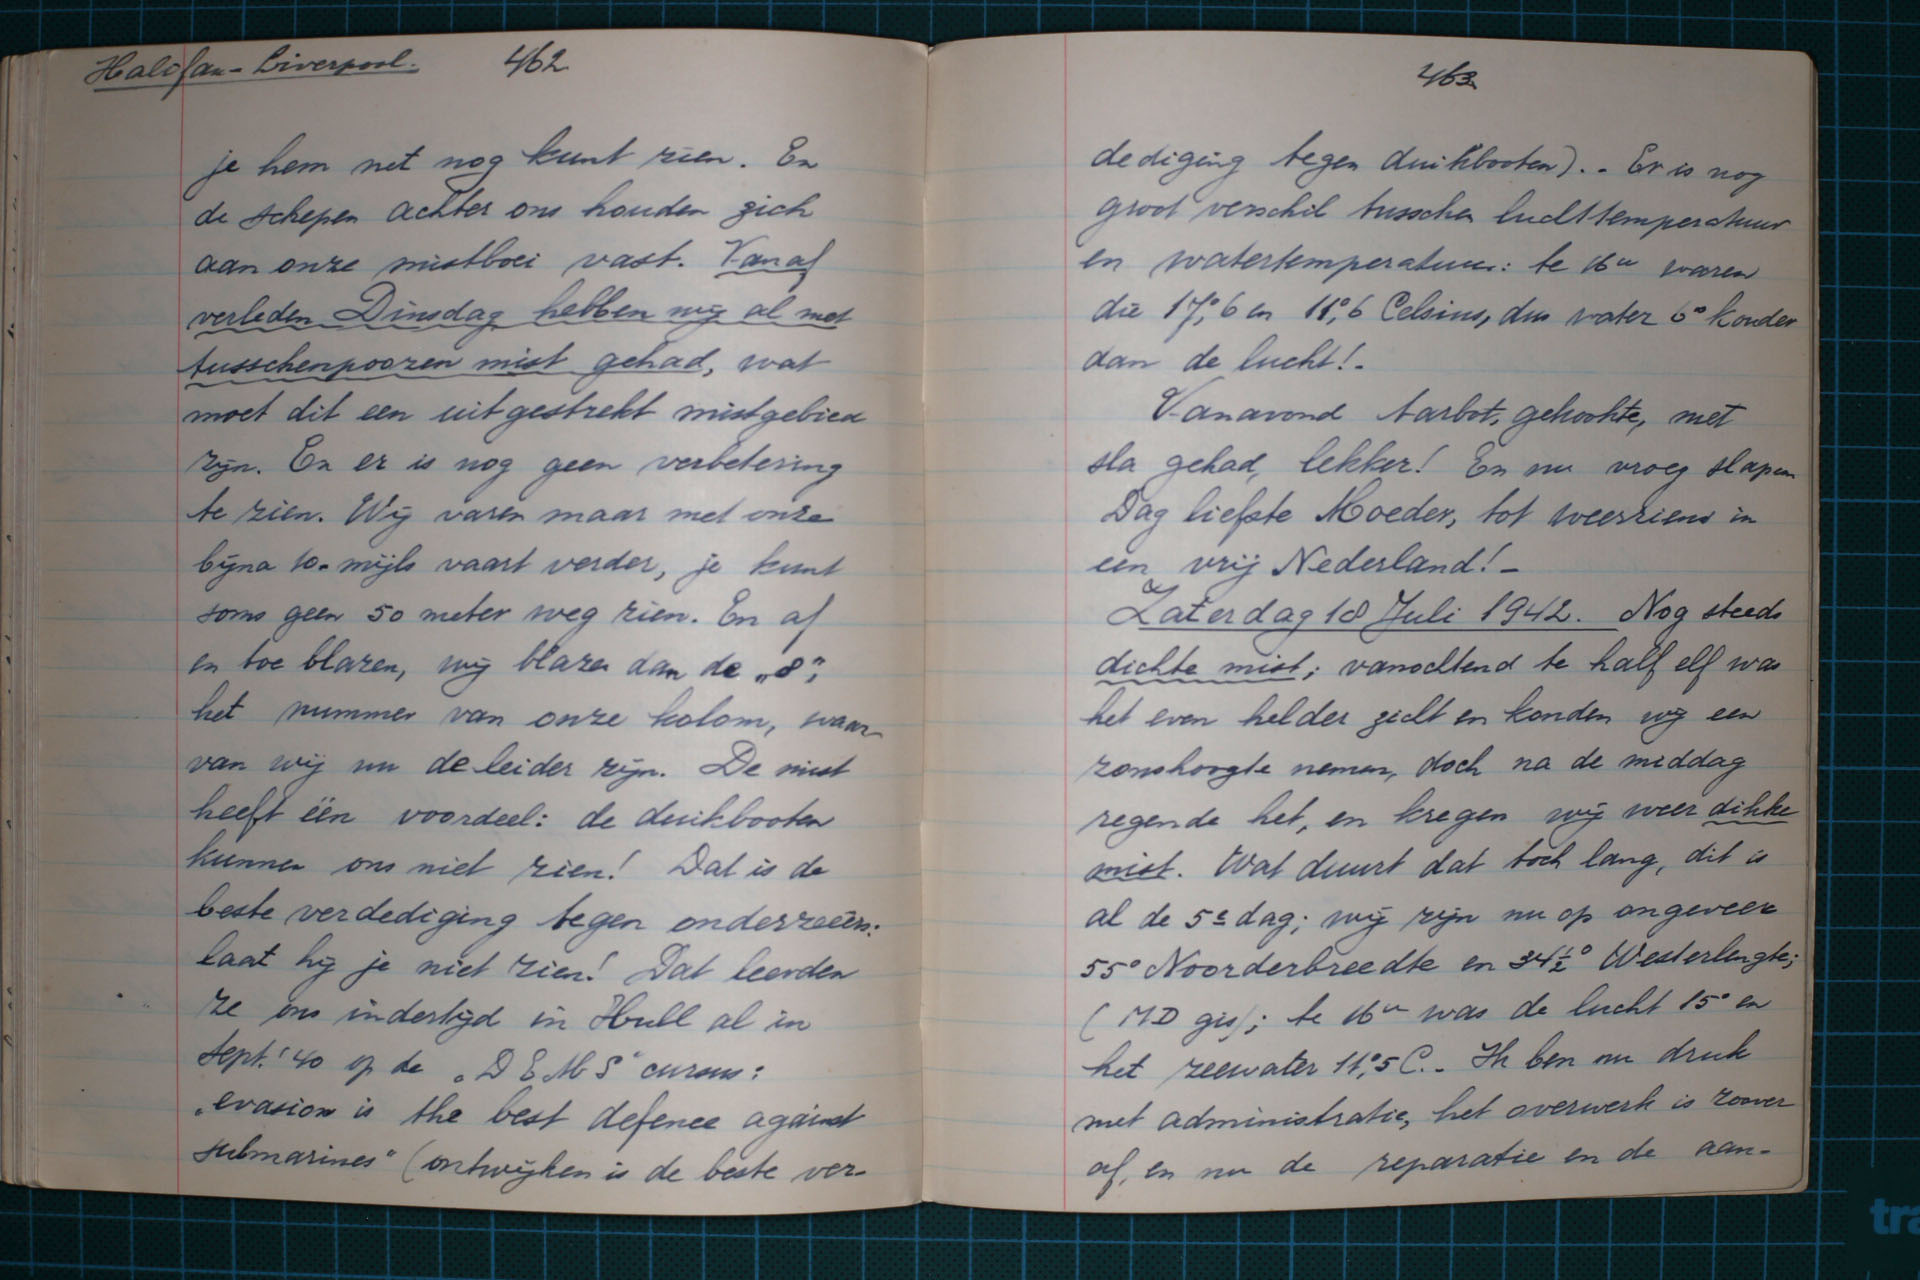 Halifax - Liverpool. 462
je hem net nog kunt zien. En
de schepen achter ons houden zich
aan onze mistboei vast. Vanaf
verleden Dinsdag hebben wij al met
tusschenpoozen mist gehad, wat
moet dit een uitgestrekt mistgebied
zijn. En er is nog geen verbetering
te zien. Wij varen maar met onze
bijna 10-mijls vaart verder, je kunt
soms geen 50 meter weg zien. En af
en toe blazen, wij blazen dan de „8",
het nummer van onze kolom, waar
van wij nu de leider zijn. De mist
heeft één voordeel: de duikbooten
kunnen ons niet zien! Dat is de
beste verdediging tegen onderzeeërs:
laat hij je niet zien! Dat leerden
ze ons indertijd in Hull al in
Sept. '40 op de „DEMS" cursus:
„evasion is the best defence against
submarines" (ontwijken is de beste ver-
463
dediging tegen duikbooten).. Er is nog
groot verschil tusschen luchttemperatuur
en watertemperatuur: te 16u waren
die 17°,6 en 11°,6 Celsius, dus water 6° kouder
dan de lucht!.
Vanavond tarbot, gekookte, met
sla gehad, lekker! En nu vroeg slapen
Dag liefste Moeder, tot weerziens in
een vrij Nederland! -
Zaterdag 18 Juli 1942. Nog steeds
dichte mist; vanochtend te half elf was
het even helder zicht en konden wij een
zonshoogte nemen, doch na de middag
regende het, en kregen wij weer dikke
mist. Wat duurt dat toch lang, dit is
al de 5e dag; wij zijn nu op ongeveer
55° Noorderbreedte en 34½° Westerlengte;
(MD gis); te 16u was de lucht 15° en
het zeewater 11°,5 C.. Ik ben nu druk
met administratie, het overwerk is zoover
af, en nu de reparatie en de aan-
tra